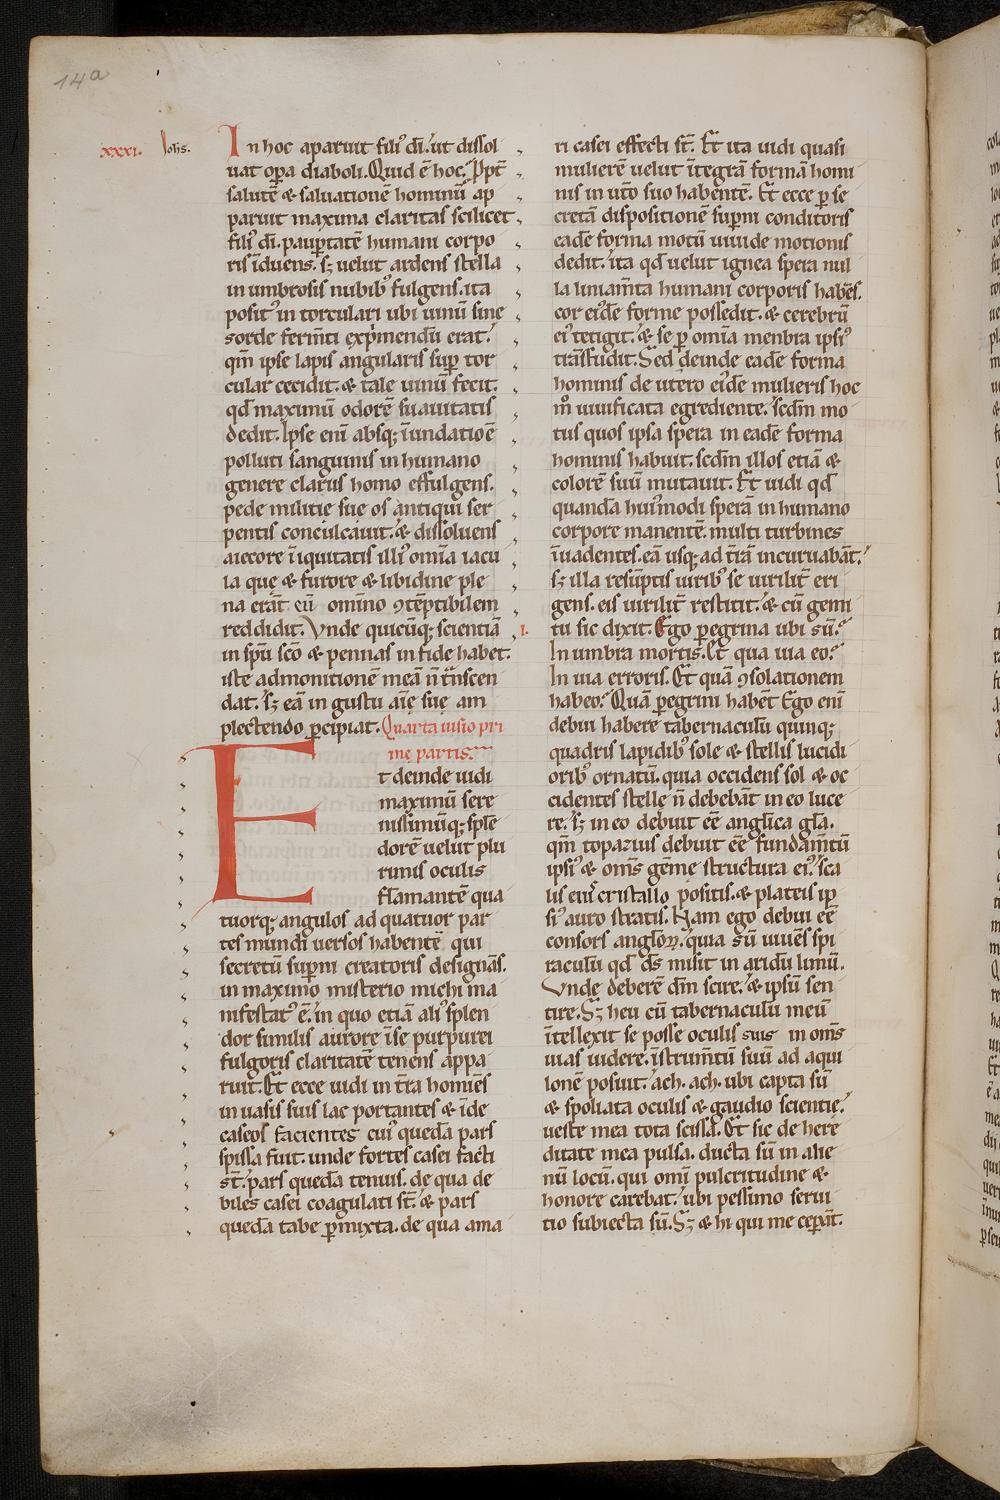 14a
xxxi. Iohis.
In hoc aparuit fili᷒ di̅. ut dissol
uat op̅a diaboli. Quid e̅ hoc? Ppt̅
salute̅ & saluatione̅ hominu̅ ap
paruit maxima claritas scilicet
fili᷒ di̅. paup̅tate̅ humani corpo
ris i̅duens. sʒ uelut ardens stella
in umbrosis nubib᷒ fulgens. ita
posit᷒ in torculari ubi uinu̅ sine
sorde ferm̅ti exp̅mendu̅ erat.
qm̅ ipse lapis angularis sup̅ tor
cular cecidit. & tale uinu̅ fecit.
qd̅ maximu̅ odore̅ suauitatis
dedit. Ipse eni̅ absqʒ i̅undatio̅e
polluti sanguinis in humano
genere clarus homo effulgens.
pede militie sue os antiqui ser
pentis conculcauit. & dissoluens
aiecore i̅iquitatis illi᷒ omi̅a iacu
la que & furore & libidine ple
na era̅t eu̅ omi̅no ꝯte̅ptibilem
reddidit. Vnde quicu̅qʒ scientia̅
in spu̅ sc̅o & pennas in fide habet.
iste admonitione̅ mea̅ n̅ tn̅scen
dat. sʒ ea̅ in gustu ai̅ę suę am
plectendo p̲cipiat. Quarta uisio pri
mę partis.
Et deinde uidi
maximu̅ sere
nissimu̅qʒ sple̅
dore̅ uelut plu
rimis oculis
flamante̅ qua
tuorqʒ angulos ad quatuor par
tes mundi uersos habente̅ qui
secretu̅ sup̅ni creatoris designa̅s.
in maximo misterio michi ma
nifestat᷒ e̅. in quo etia̅ ali᷒ splen
dor similis aurore i̅ se purpurei
fulgoris claritate̅ tenens appa
ruit. Et ecce uidi in t̅ra homi̅es
in uasis suis lac portantes & i̅de
caseos facientes cui᷒ queda̅ pars
spissa fuit. unde fortes casei facti
st̅. pars queda̅ tenuis. de qua de
biles casei coagulati st̅. & pars
queda̅ tabe p̲mixta. de qua ama
ri casei effecti st̅. Et ita uidi quasi
muliere̅ uelut i̅tegra̅ forma̅ homi
nis in ut̅o suo habente̅. Et ecce p̲ se
creta̅ dispositione̅ sup̅ni conditoris
eade̅ forma motu̅ uiuide motionis
dedit. ita qd̅ uelut ignea spera nul
la liniam̅ta humani corporis habe̅s.
cor ei᷒de̅ forme possedit. & cerebru̅
ei᷒ tetigit. & se p̲ omi̅a menbra ipsi᷒
tra̅sfudit. Sed deinde eade̅ forma
hominis de utero ei᷒de̅ mulieris hoc
m̊ uiuificata egrediente. scd̅m mo
tus quos ipsa spera in eade̅ forma
hominis habuit. scd̅m illos etia̅ &
colore̅ suu̅ mutauit. Et uidi qd̅
quanda̅ hui᷒modi spera̅ in humano
corpore manente̅. multi turbines
i̅uadentes. ea̅ usqʒ ad t̅ra̅ incuruaba̅t.
sʒ illa resu̅ptis uirib᷒ se uirilit̅ eri
gens. eis uirilit̅ restitit. & cu̅ gemi
i. tu sic dixit. Ego p̲egrina ubi su̅?
In umbra mortis. Et qua uia eo?
In uia erroris. Et qua̅ ꝯsolationem
habeo? Qua̅ p̲egrini habe̅t Ego eni̅
debui habere tabernaculu̅ quinqʒ
quadris lapidib᷒ sole & stellis lucidi
orib᷒ ornatu̅. quia occidens sol & oc
cidentes stelle n̅ debeba̅t in eo luce
re. sʒ in eo debuit e̅e angl̅ica gl̅a.
qm̅ topazius debuit e̅e fundam̅tu̅
ipsi᷒ & om̅s ge̅me structura ei᷒. sca
lis ei᷒ cristallo positis. & plateis ip
si᷒ auro stratis. Nam ego debui e̅e
consors anglo̅ꝝ. quia su̅ uiue̅s spi
raculu̅ qd̅ ds̅ misit in aridu̅ limu̅.
Vnde debere̅ dm̅ scire. & ipsu̅ sen
tire. Sʒ heu cu̅ tabernaculu̅ meu̅
i̅tellexit se posse oculis suis in om̅s
uias uidere. i̅strum̅tu̅ suu̅ ad aqui
lone̅ posuit. ach. ach. ubi capta su̅
& spoliata oculis & gaudio scientię.
ueste mea tota scissa. Et sic de here
ditate mea pulsa. ducta su̅ in alie
nu̅ locu̅. qui omi̅ pulcritudine &
honore carebat. ubi pessimo serui
tio subiecta su̅. Sʒ & hi qui me cep̅a̅t.